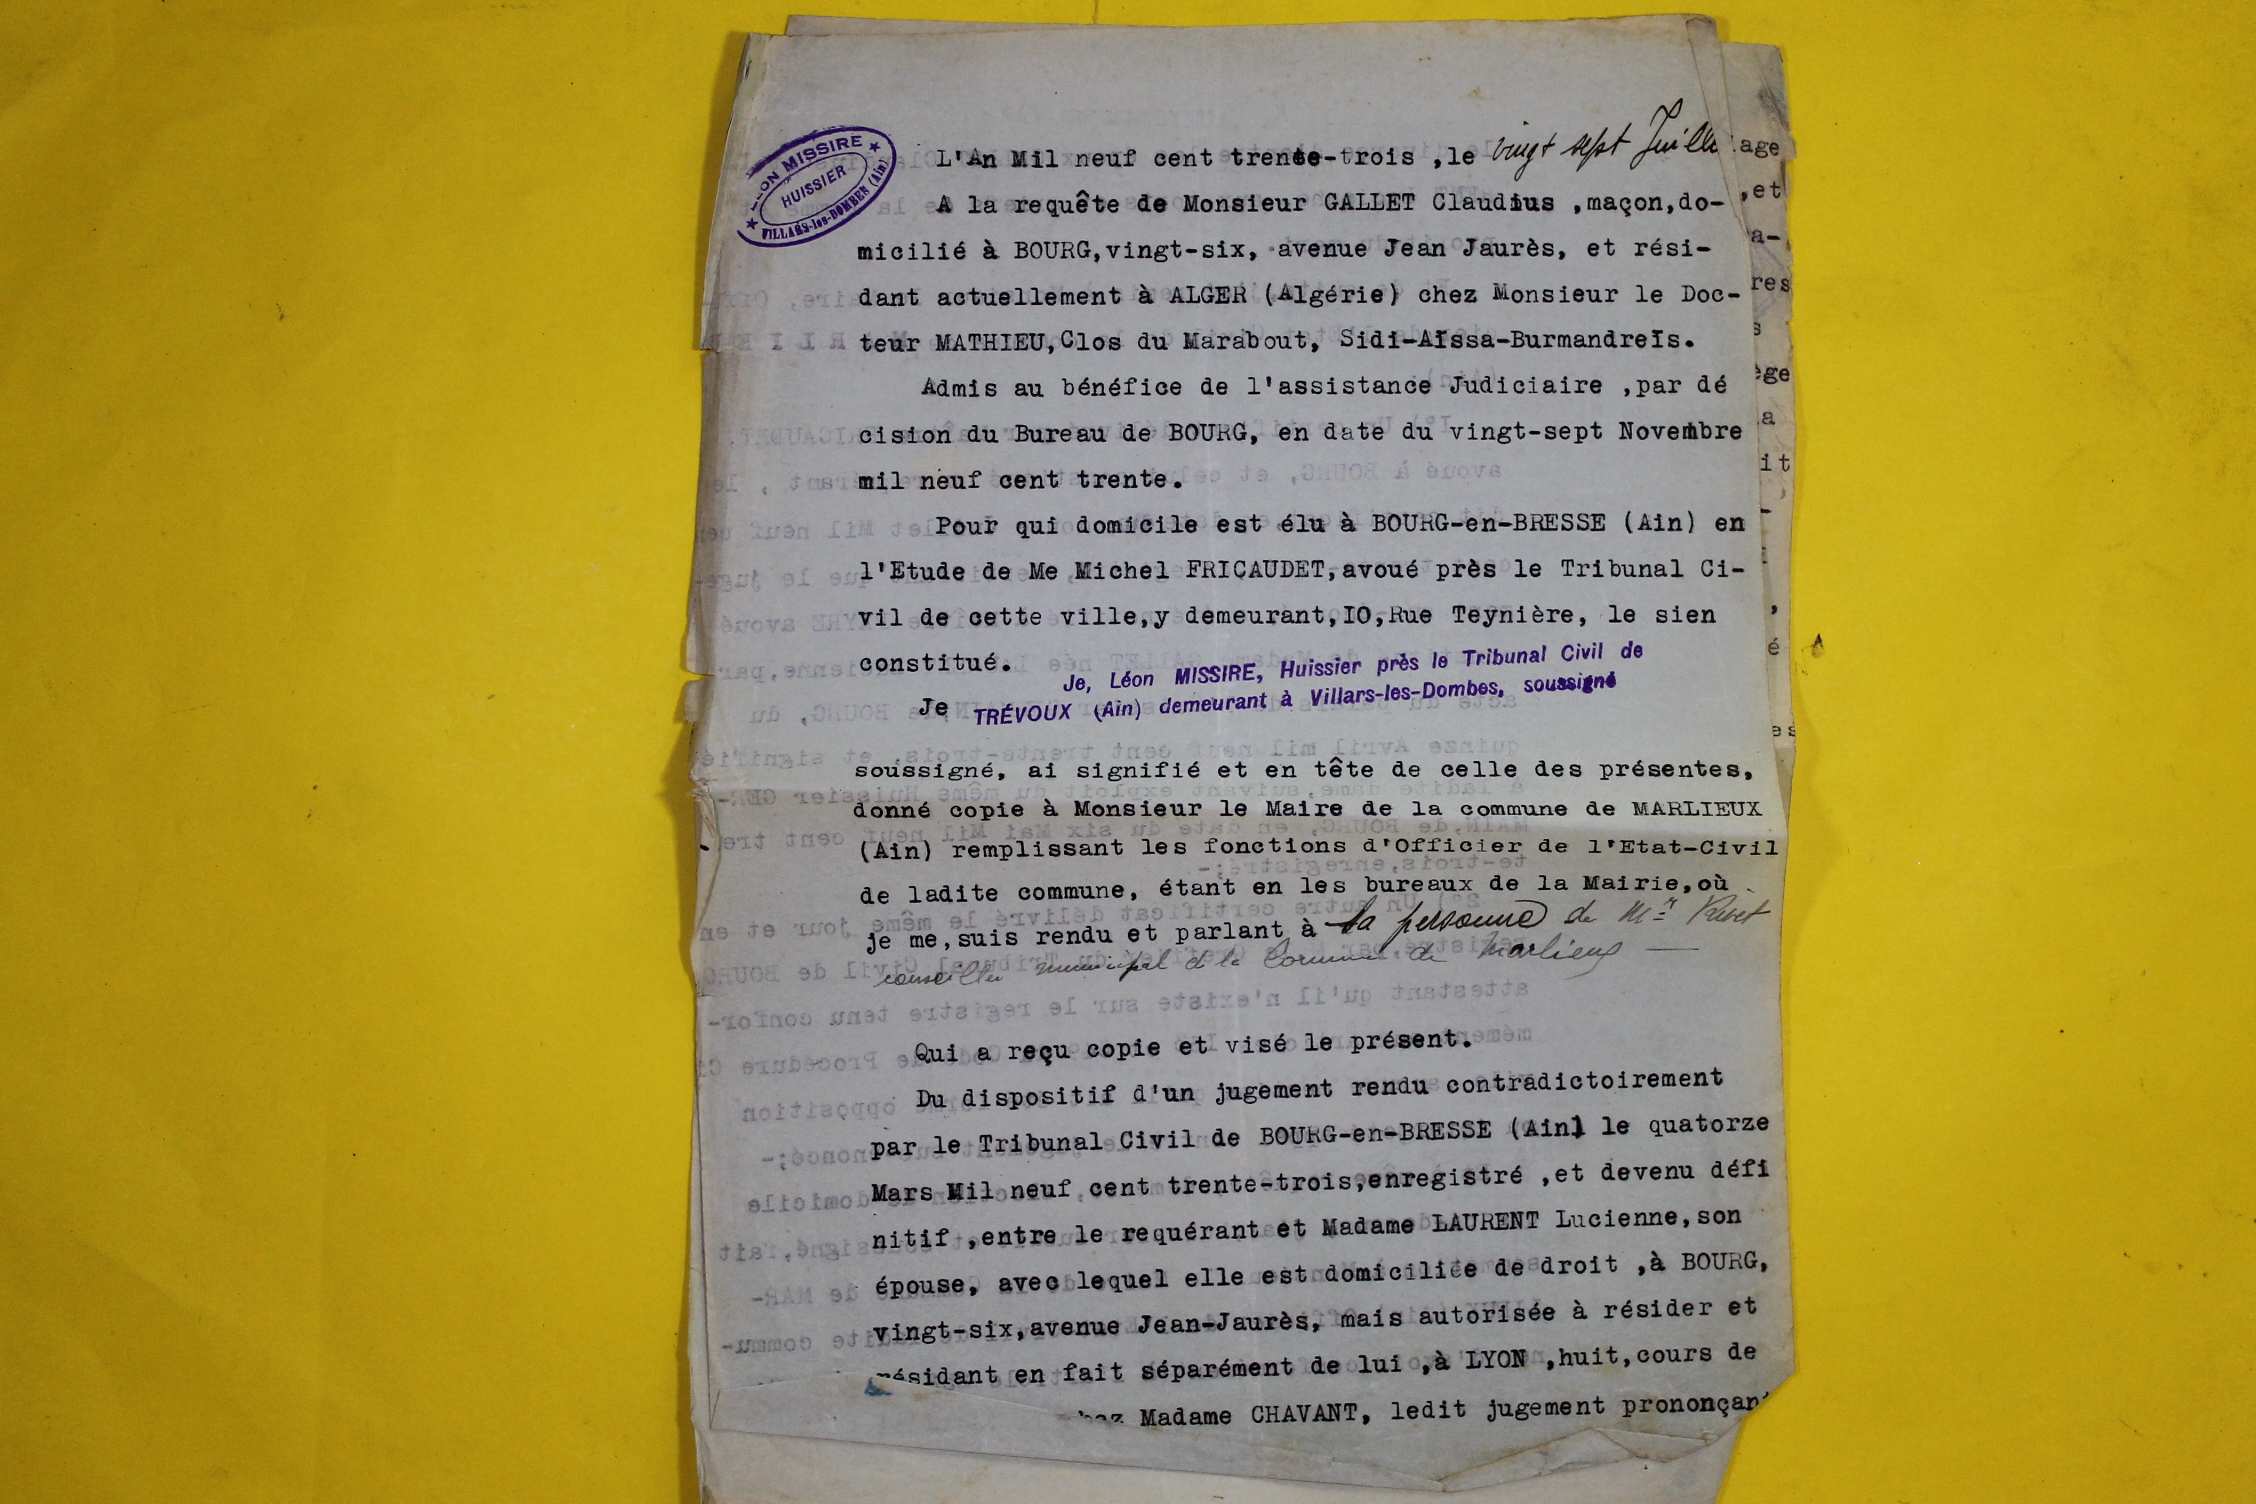 LÉON MISSIRE
HUISSIER
VILLARS-les-DOMBES (Ain)
L'An Mil neuf cent trente-trois ,le vingt sept Juillet
A la requête de Monsieur GALLET Claudius ,maçon,do-
micilié à BOURG,vingt-six, avenue Jean Jaurès, et rési-
dant actuellement à ALGER (Algérie) chez Monsieur le Doc-
teur MATHIEU,Clos du Marabout, Sidi-Aïssa-Burmandreïs.
Admis au bénéfice de l'assistance Judiciaire ,par dé
cision du Bureau de BOURG, en date du vingt-sept Novembre
mil neuf cent trente.
Pour qui domicile est élu à BOURG-en-BRESSE (Ain) en
l'Etude de Me Michel FRICAUDET,avoué près le Tribunal Ci-
vil de cette ville,y demeurant,IO,Rue Teynière, le sien
constitué.
Je, Léon MISSIRE, Huissier près le Tribunal Civil de
Je TRÉVOUX (Ain) demeurant à Villars-les-Dombes, soussigné
soussigné, ai signifié et en tête de celle des présentes,
donné copie à Monsieur le Maire de la commune de MARLIEUX
(Ain) remplissant les fonctions d'Officier de l'Etat-Civil
de ladite commune, étant en les bureaux de la Mairie,où
je me,suis rendu et parlant à la personne de Mr
conseiller municipal de la Commune de Marlieux
Qui a reçu copie et visé le présent.
Du dispositif d'un jugement rendu contradictoirement
par le Tribunal Civil de BOURG-en-BRESSE (Ain) le quatorze
Mars Mil neuf cent trente-trois,enregistré ,et devenu défi
nitif ,entre le requérant et Madame LAURENT Lucienne,son
épouse, avec lequel elle est domiciliée de droit ,à BOURG,
vingt-six,avenue Jean-Jaurès, mais autorisée à résider et
résidant en fait séparément de lui ,à LYON ,huit,cours de
chez Madame CHAVANT, ledit jugement prononçant